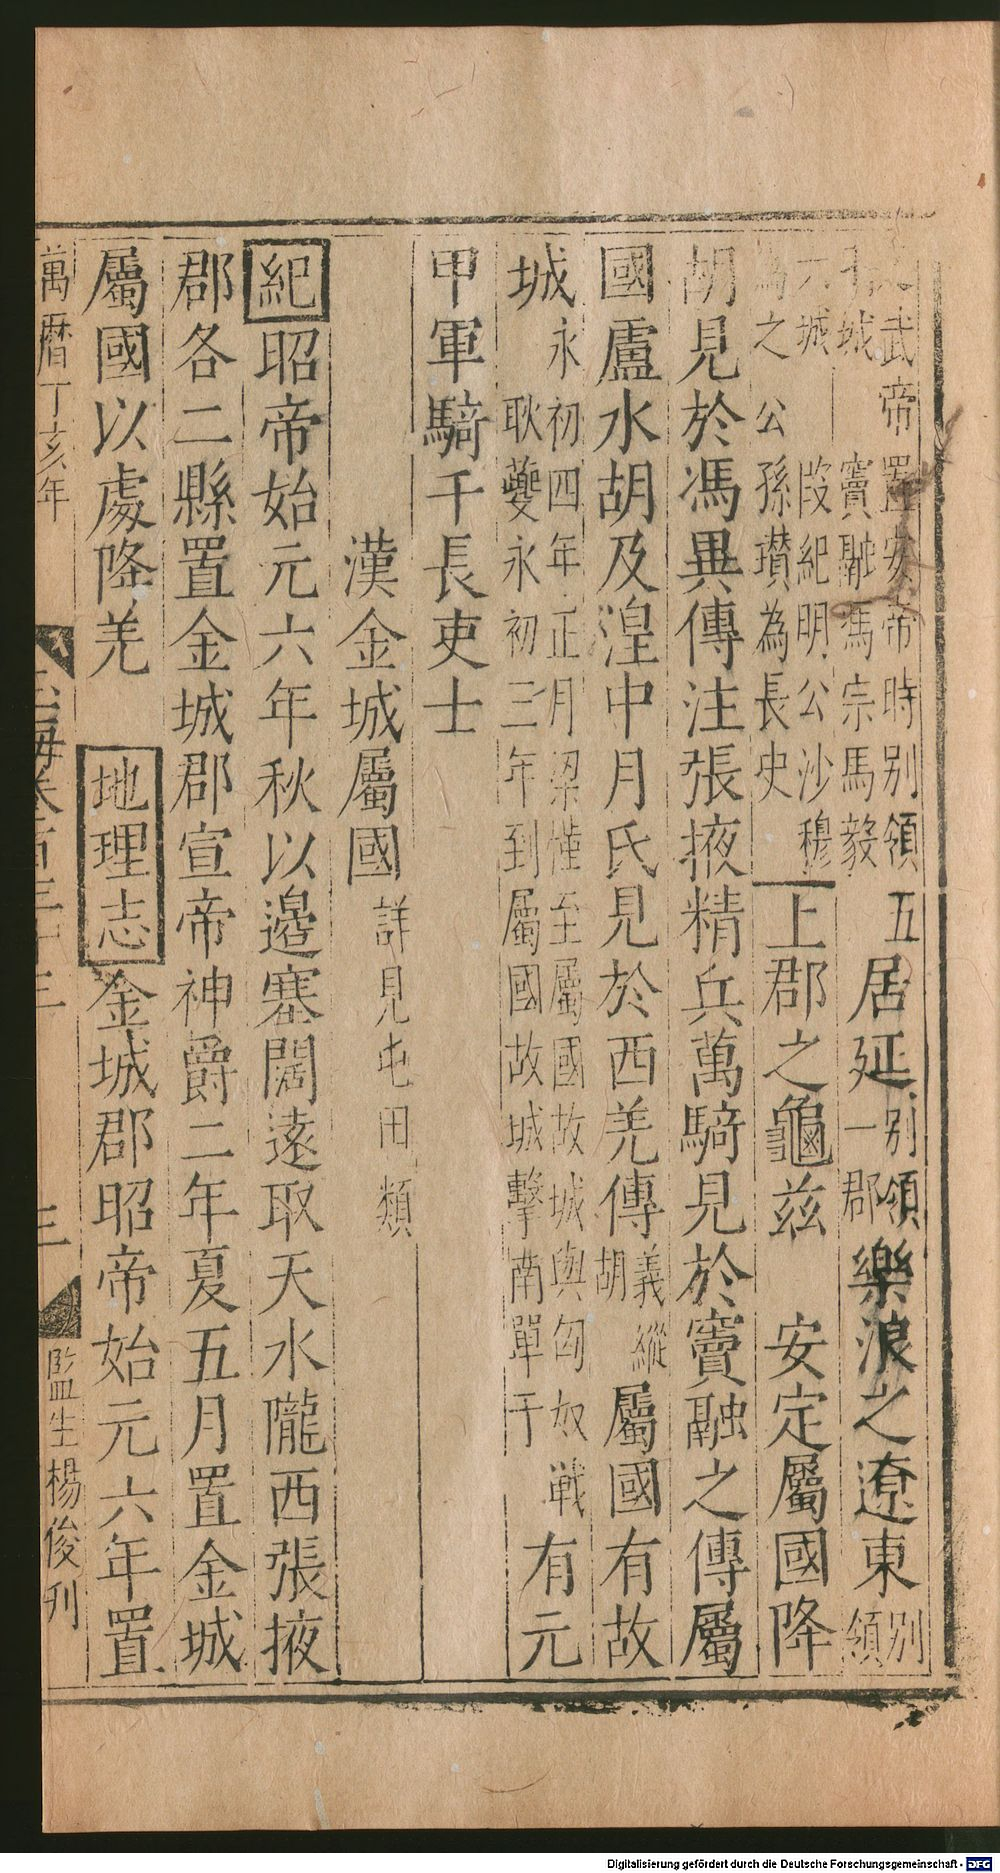 武帝置安帝時別領五
城 竇融馮宗馬毅
居延別領
一郡
樂浪之遼東別
領
六城 段紀明公沙穆
為之 公孫瓚為長史
上郡之龜茲 安定屬國降
胡見於馮異傳注張掖精兵萬騎見於竇融之傳屬
國盧水胡及湟中月氏見於西羌傳義縱
胡
屬國有故
城永初四年正月梁慬至屬國故城與匈奴戰
耿夔永初三年到屬國故城擊南單于
有元
甲軍騎千長吏士
漢金城屬國詳見屯田類
紀昭帝始元六年秋以邉塞闊遠取天水隴西張掖
郡各二縣置金城郡宣帝神爵二年夏五月置金城
屬國以處降羌 地理志金城郡昭帝始元六年置
萬曆丁亥年 海卷百三十三 三 監生楊俊刋
Digitalisierung gefördert durch die Deutsche Forschungsgemeinschaft - DFG